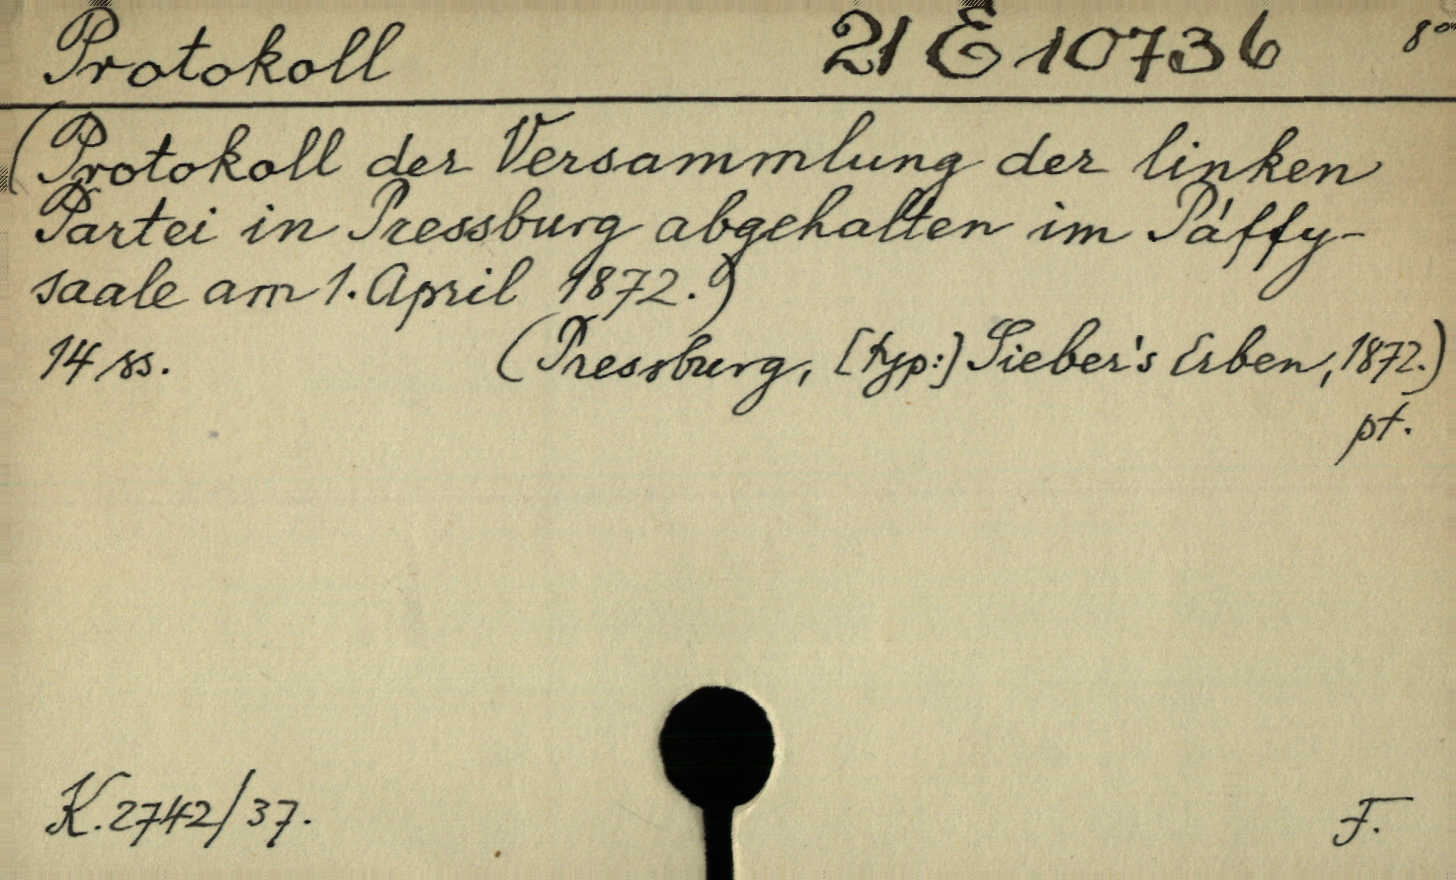 Protokoll 21 E 10736 8°
(Protokoll der Versammlung der linken
Partei in Pressburg abgehalten im Páffy-
saale am 1. April 1872.)
14 ss. (Pressburg, [typ:] Sieber's Erben, 1872.)
pt.
K. 2742/37. F.